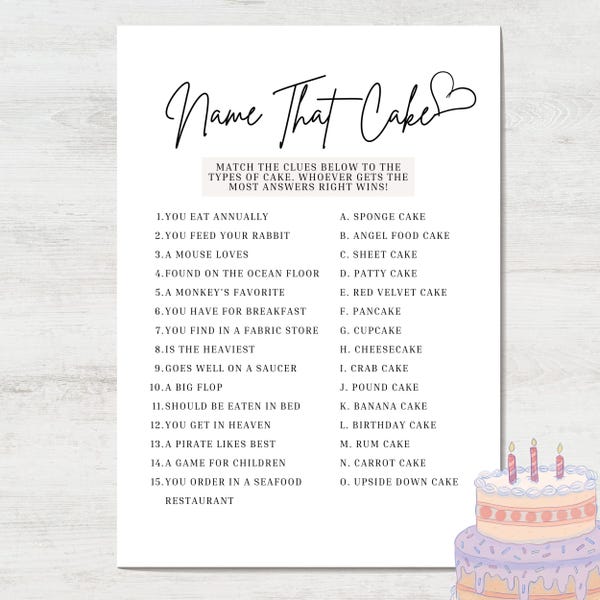 Name That Cake
MATCH THE CLUES BELOW TO THE
TYPES OF CAKE. WHOEVER GETS THE
MOST ANSWERS RIGHT WINS!
1. YOU EAT ANNUALLY
2. YOU FEED YOUR RABBIT
3. A MOUSE LOVES
4. FOUND ON THE OCEAN FLOOR
5. A MONKEY'S FAVORITE
6. YOU HAVE FOR BREAKFAST
7. YOU FIND IN A FABRIC STORE
8. IS THE HEAVIEST
9. GOES WELL ON A SAUCER
10. A BIG FLOP
11. SHOULD BE EATEN IN BED
12. YOU GET IN HEAVEN
13. A PIRATE LIKES BEST
14. A GAME FOR CHILDREN
15. YOU ORDER IN A SEAFOOD
RESTAURANT
A. SPONGE CAKE
B. ANGEL FOOD CAKE
C. SHEET CAKE
D. PATTY CAKE
E. RED VELVET CAKE
F. PANCAKE
G. CUPCAKE
H. CHEESECAKE
I. CRAB CAKE
J. POUND CAKE
K. BANANA CAKE
L. BIRTHDAY CAKE
M. RUM CAKE
N. CARROT CAKE
O. UPSIDE DOWN CAKE